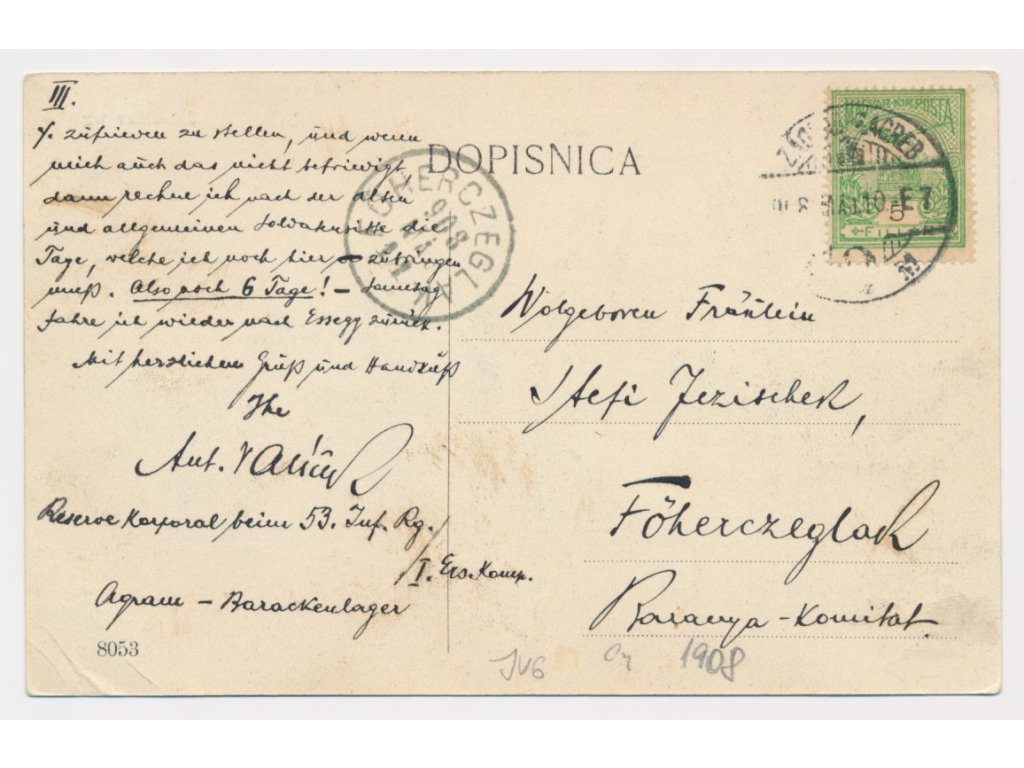 III.
/. zufrieden zu stellen, und wenn
mich auch das nicht befriedigt,
dann rechne ich nach der alten
und allgemeinen Soldatensitte die
Tage, welche ich noch hier zubringen
muß. Also noch 6 Tage! – Samstag
fahre ich wieder nach Essegg zurück.
Mit herzlichem Gruß und Handkuß
Ihr
Ant.
Reserve Korporal beim 53. Inf. Rg./
/I. Ers. Komp.
Agram – Barackenlager
8053
DOPISNICA
FŐHERCZEGLAK
908
MAGYAR KIR. POSTA
ZAGREB
5
Wolgeboren Fräulein
Stefi Jezischek,
Főherczeglak
Baranya-Komitat.
1908